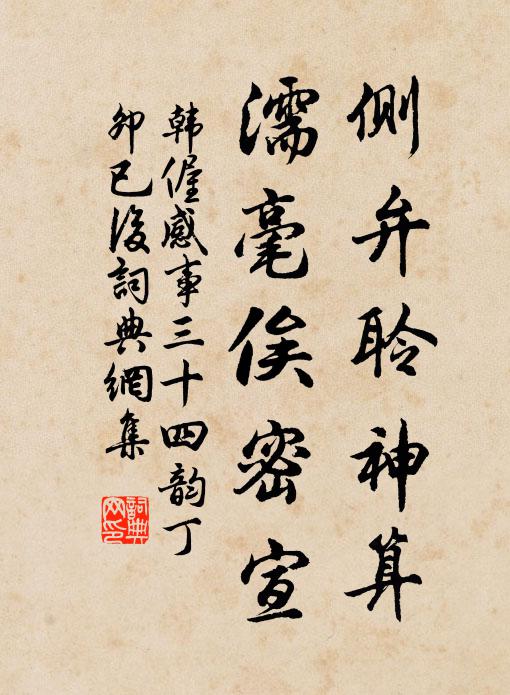 侧弁聆神算
濡毫俟密宣
韩偓感事三十四韵丁
卯已後詞典網集
詞典网印